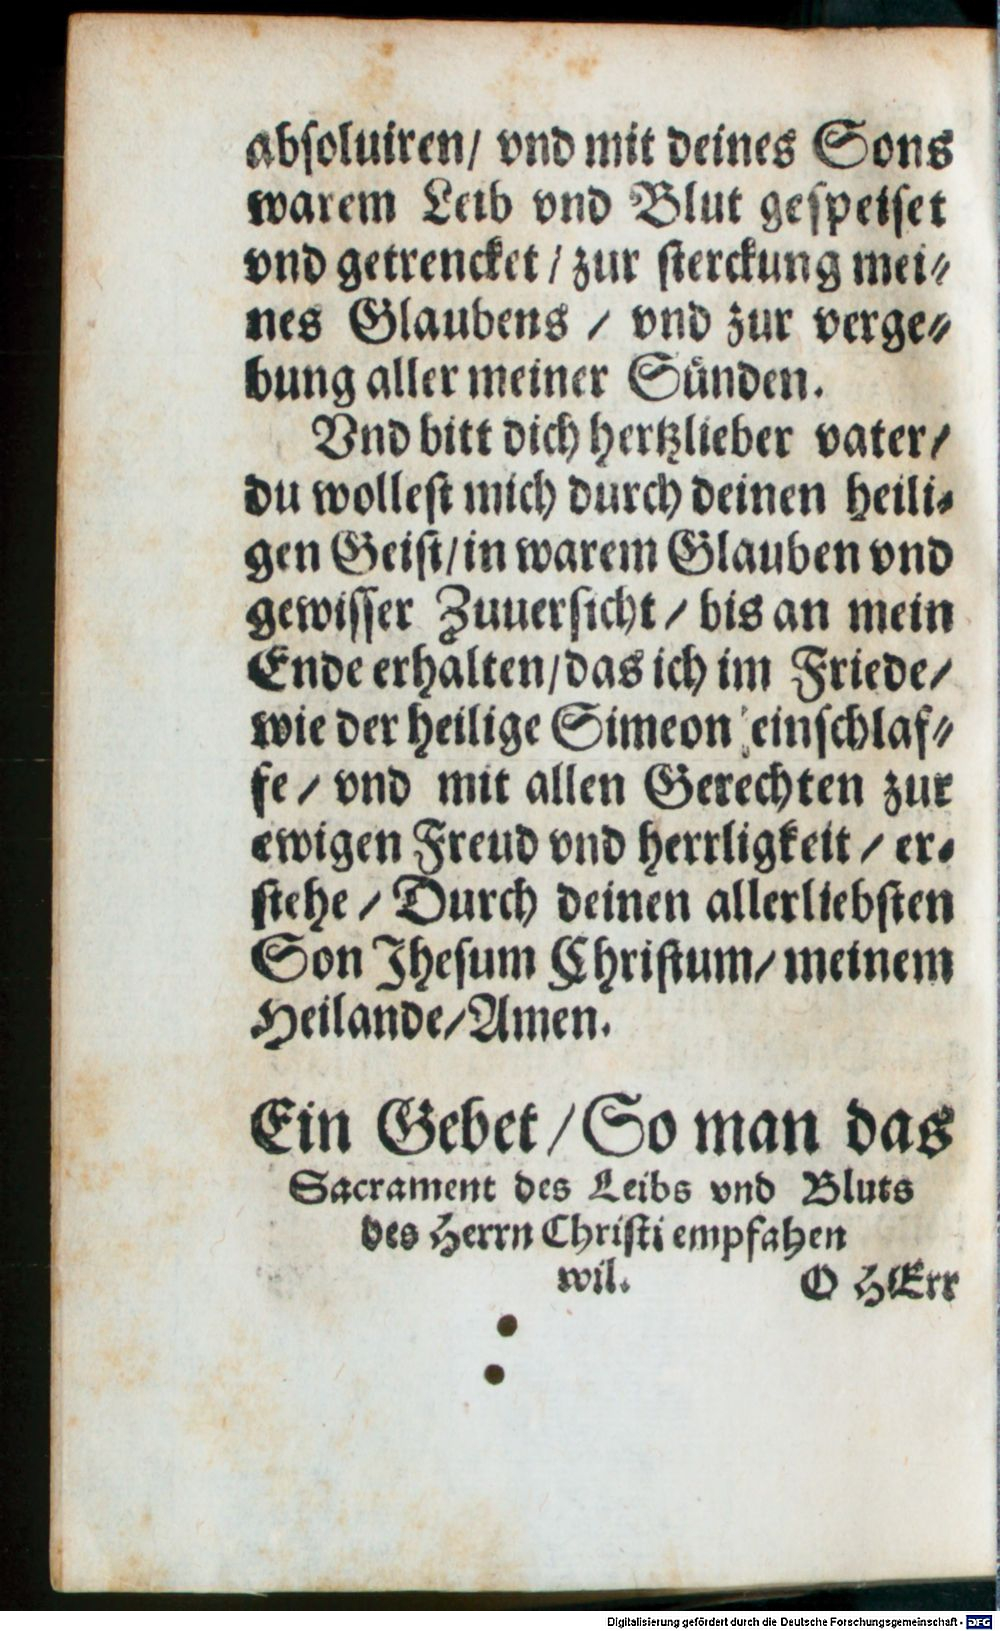 absoluiren/ vnd mit deines Sons
warem Leib vnd Blut gespeiset
vnd getrencket / zur sterckung mei-
nes Glaubens / vnd zur verge-
bung aller meiner Sünden.
Vnd bitt dich hertzlieber vater/
du wollest mich durch deinen heili-
gen Geist/in warem Glauben vnd
gewisser Zuuersicht / bis an mein
Ende erhalten/das ich im Friede/
wie der heilige Simeon einschlaf-
fe / vnd mit allen Gerechten zur
ewigen Freud vnd herrligkeit / er-
stehe / Durch deinen allerliebsten
Son Jhesum Christum/ meinem
Heilande/Amen.
Ein Gebet /So man das
Sacrament des Leibs vnd Bluts
des Herrn Christi empfahen
wil. O HErr
Digitalisierung gefördert durch die Deutsche Forschungsgemeinschaft - DFG